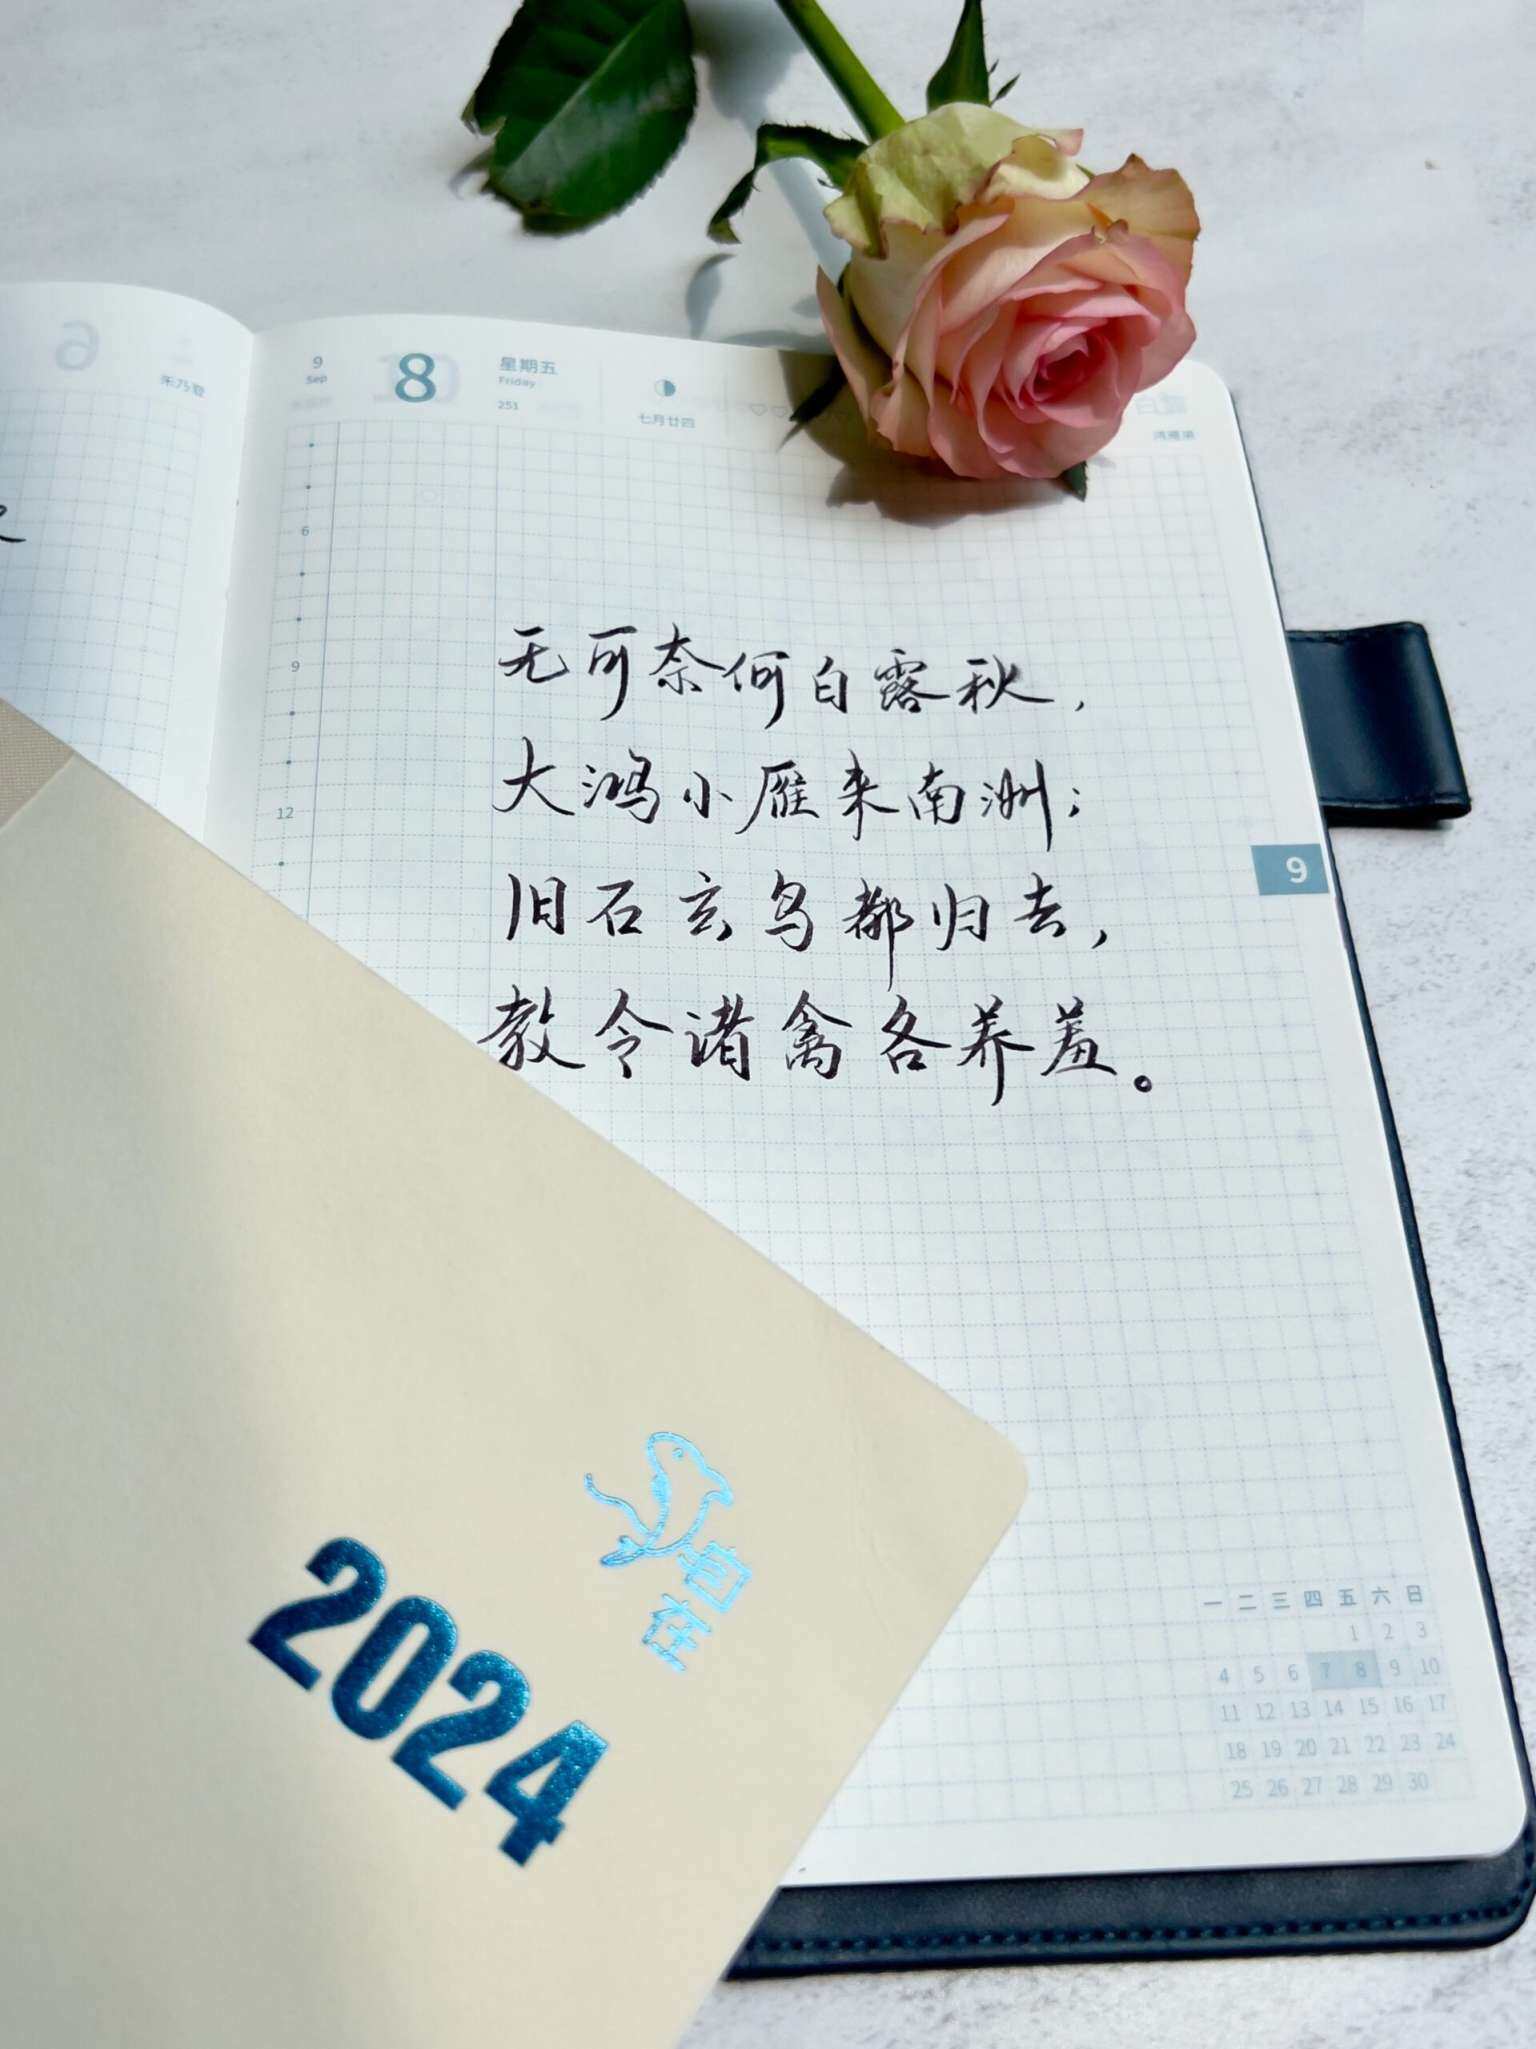 9
Sep
8
星期五
Friday
251
七月廿四
鸿雁来
6
9
12
无可奈何白露秋，
大鸿小雁来南洲；
旧石玄鸟都归去，
教令诸禽各养羞。
9
一 二 三 四 五 六 日
1 2 3
4 5 6 7 8 9 10
11 12 13 14 15 16 17
18 19 20 21 22 23 24
25 26 27 28 29 30
2024
自在